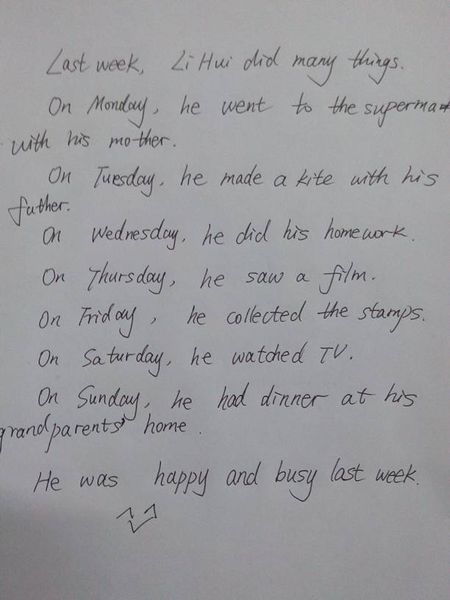 Last week, Li Hui did many things.
On Monday, he went to the supermark
with his mother.
On Tuesday, he made a kite with his
father.
On Wednesday, he did his homework.
On Thursday, he saw a film.
On Friday, he collected the stamps.
On Saturday, he watched TV.
On Sunday, he had dinner at his
grandparents' home.
He was happy and busy last week.